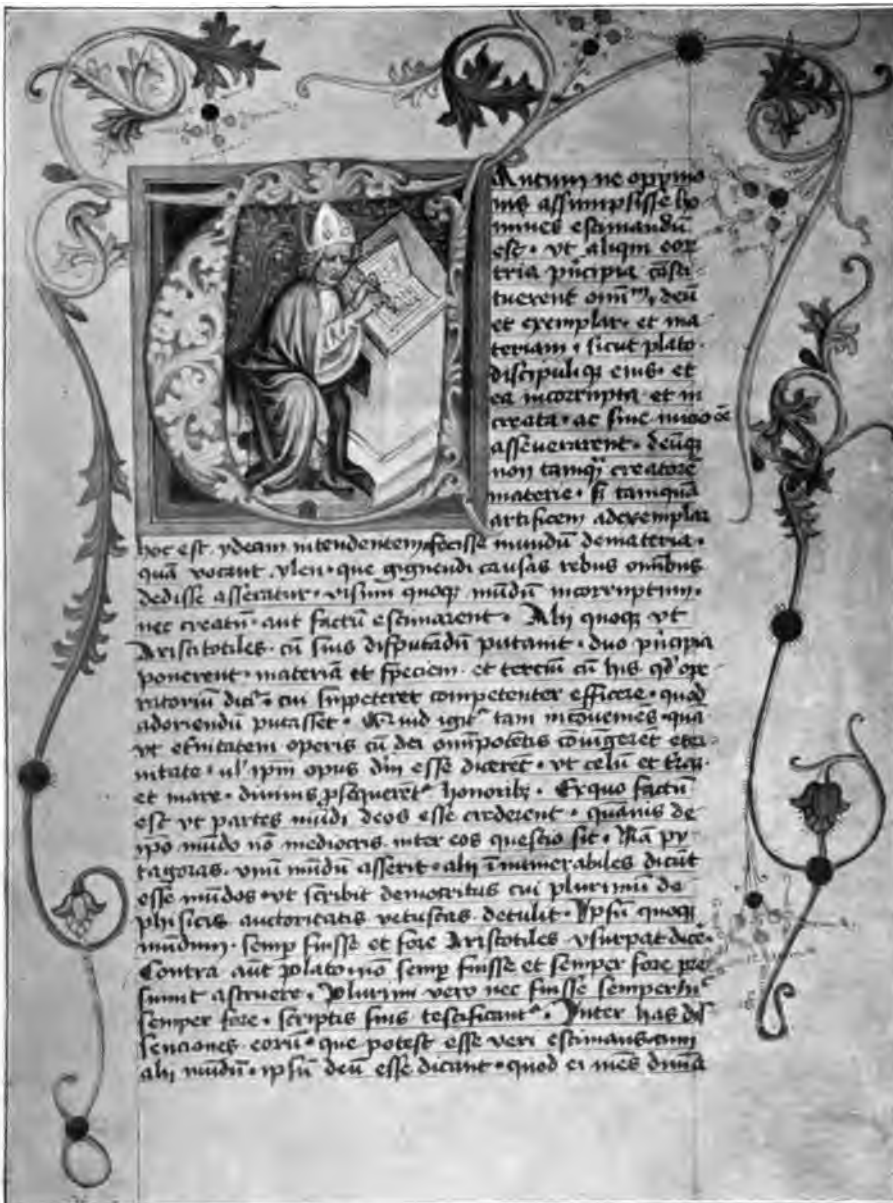 Antum ne oppinio
nis assumpsisse ho
mines estimandū
est · vt aliqui eor
tria pͥncipia cōsti
tuerent omīm, deū
et exemplar · et ma
teriam · sicut plato ·
discipuliqʒ eius · et
ea incorrupta et in
creata · ac sine inicio eē
asseuerarent · deūqʒ
non tamqͣ creatorē
materie · sꝫ tamquā
artificem ad exemplar
hoc est · ydeam intendentem fecisse mundū de materia ·
quā vocant · ylen · que gignendi causas rebus omībus
dedisse asseratur · vīsum quoqʒ mūdū incorruptum ·
nec creatū · aut factū estimarent · Alij quoqʒ vt
Aristotiles · cū suis disputādū putauit · duo pͥncipia
ponerent · materiā et speciem · et terciū cū his qd' ope
ratoriū dicit᷑ · cui suppeteret competenter efficere · quod
adoriendū putasset · Quid igit᷑ tam incōueniēs · quā
vt et̄nitatem operis cū dei omīpotētis cōiūgeret eter
nitate · ul' ipm̄ opus deū esse diceret · vt celū et t̄ras ·
et mare · diuinis ꝓsequeret᷑ honoribꝫ · Ex quo factū
est vt partes mūdi deos esse crederent · quāuis de
ipō mūdo nō mediocris inter eos questio sit · Nā py
tagoras · vnū mūdū asserit · alij īnumerabiles dicūt
esse mūdos · vt scribit democritus cui plurimū de
phisicis auctoritatis vetustas detulit · Ipsū quoqʒ
mūdum · semp̄ fuisse et fore Aristotiles vsurpat dicē ·
Contra aūt plato · nō semp̄ fuisse et semper fore pre
sumit astruere · Plurimi vero nec fuisse semper nec
semper fore · scriptis suis testificant᷑ · Inter has dis
senciones eorū · que potest esse veri estimatio · cum
alij mūdū · ipsū deū esse dicant · quod ei mēs diuīa